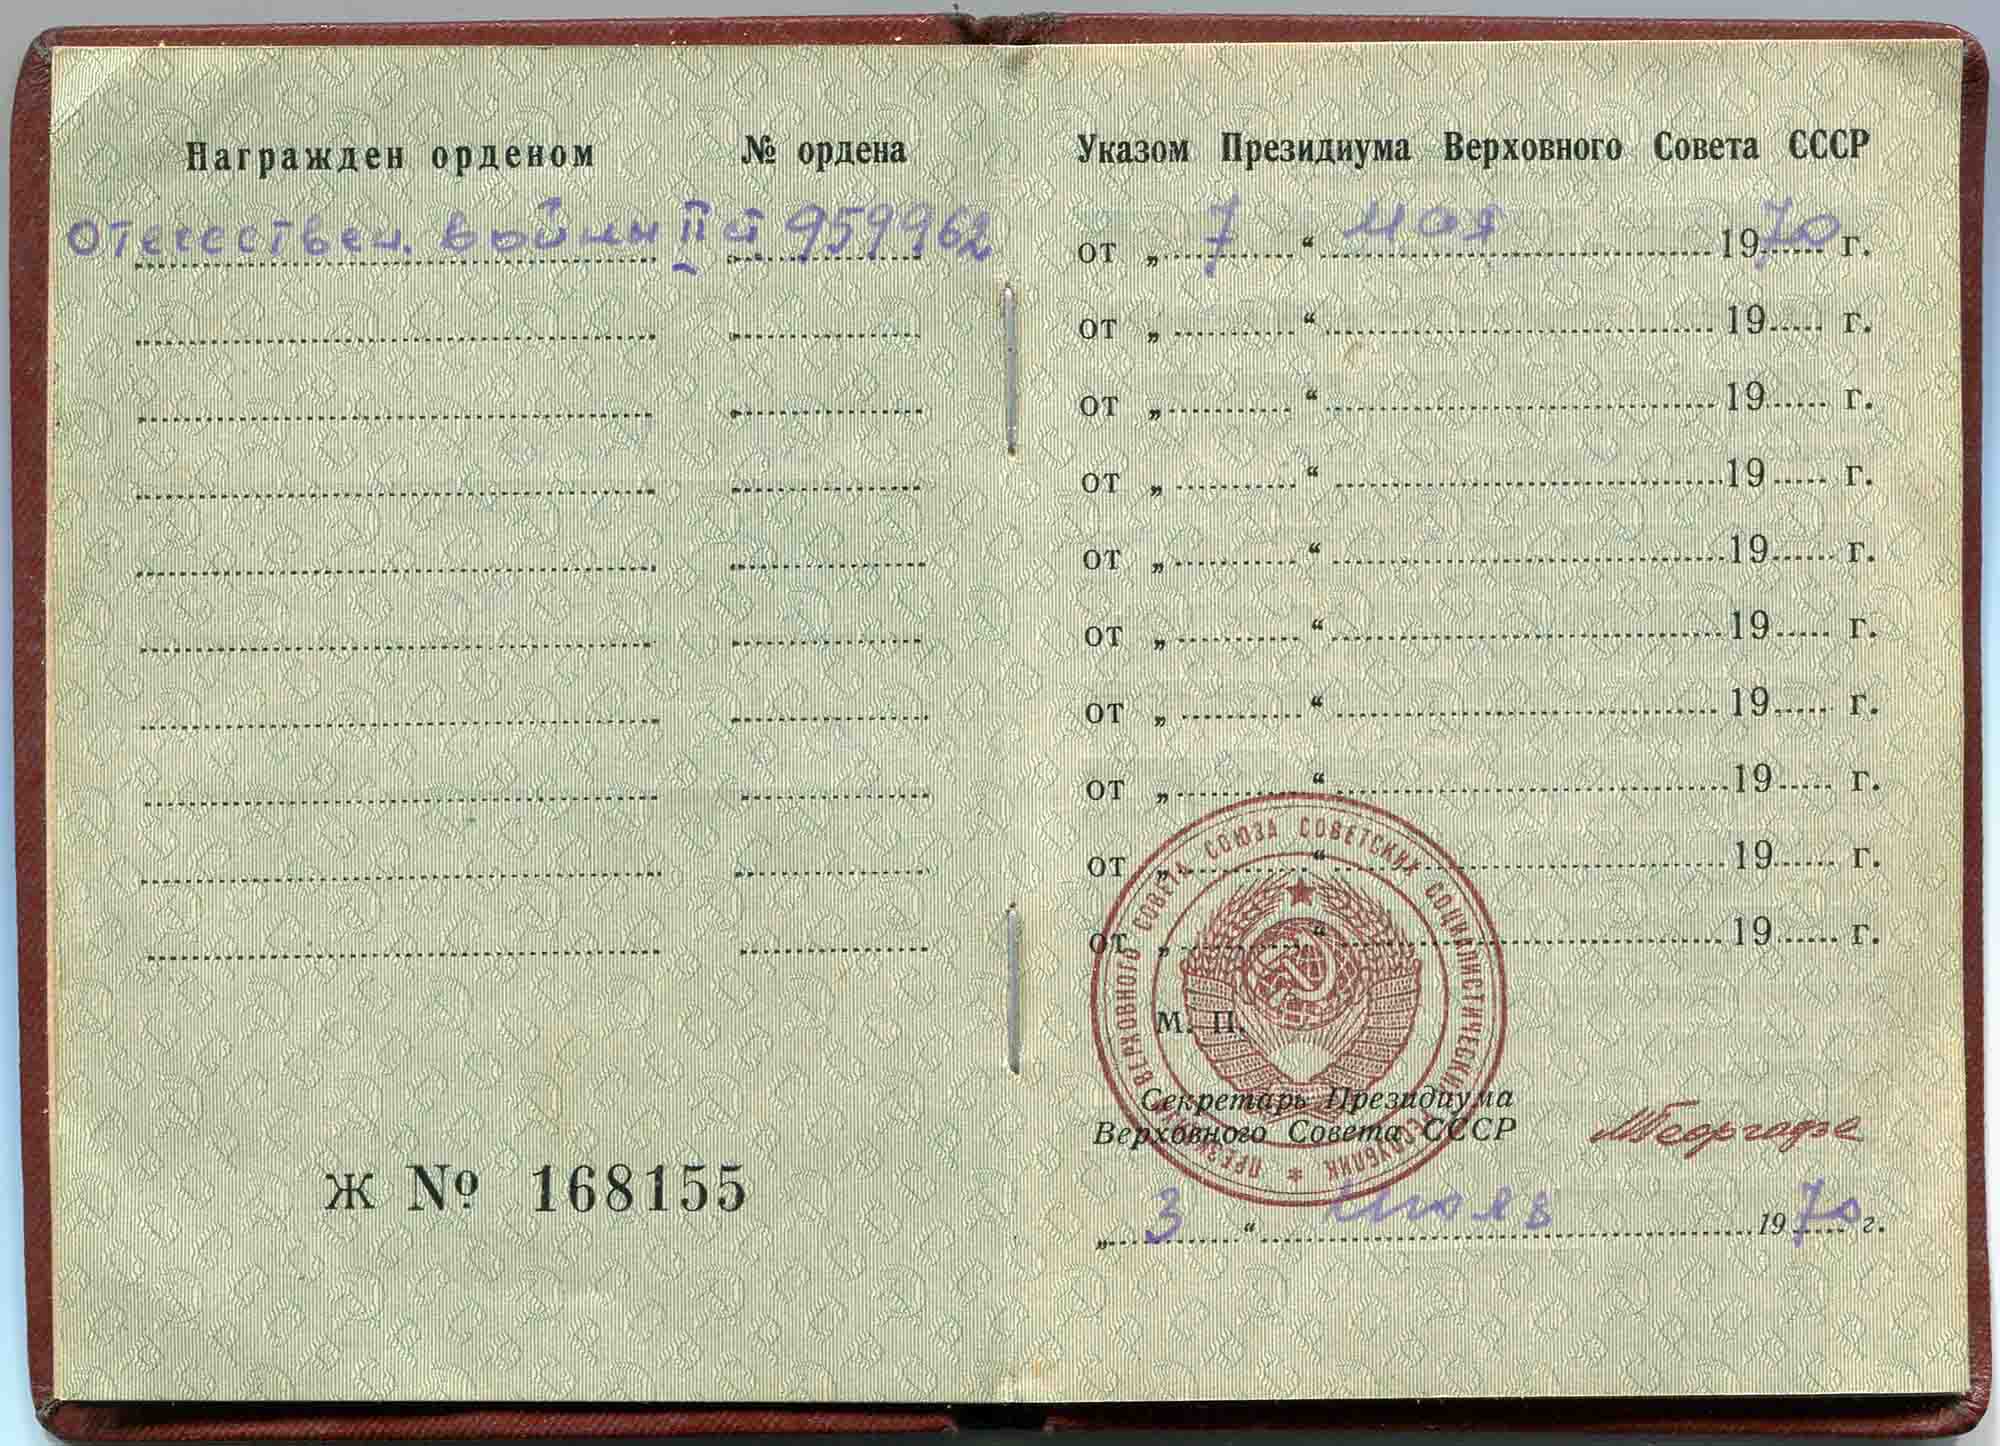 Награжден орденом № ордена
Отечествен. войны II ст 959962
Ж № 168155
Указом Президиума Верховного Совета СССР
от „ 7 “ мая 1970 г.
от „ “ 19 г.
от „ “ 19 г.
от „ “ 19 г.
от „ “ 19 г.
от „ “ 19 г.
от „ “ 19 г.
от „ “ 19 г.
от „ “ 19 г.
от „ “ 19 г.
ПРЕЗИДИУМ ВЕРХОВНОГО СОВЕТА СОЮЗА СОВЕТСКИХ СОЦИАЛИСТИЧЕСКИХ РЕСПУБЛИК *
М. П.
Секретарь Президиума
Верховного Совета СССР
МГеоргадзе
„ 3 “ июля 1970 г.